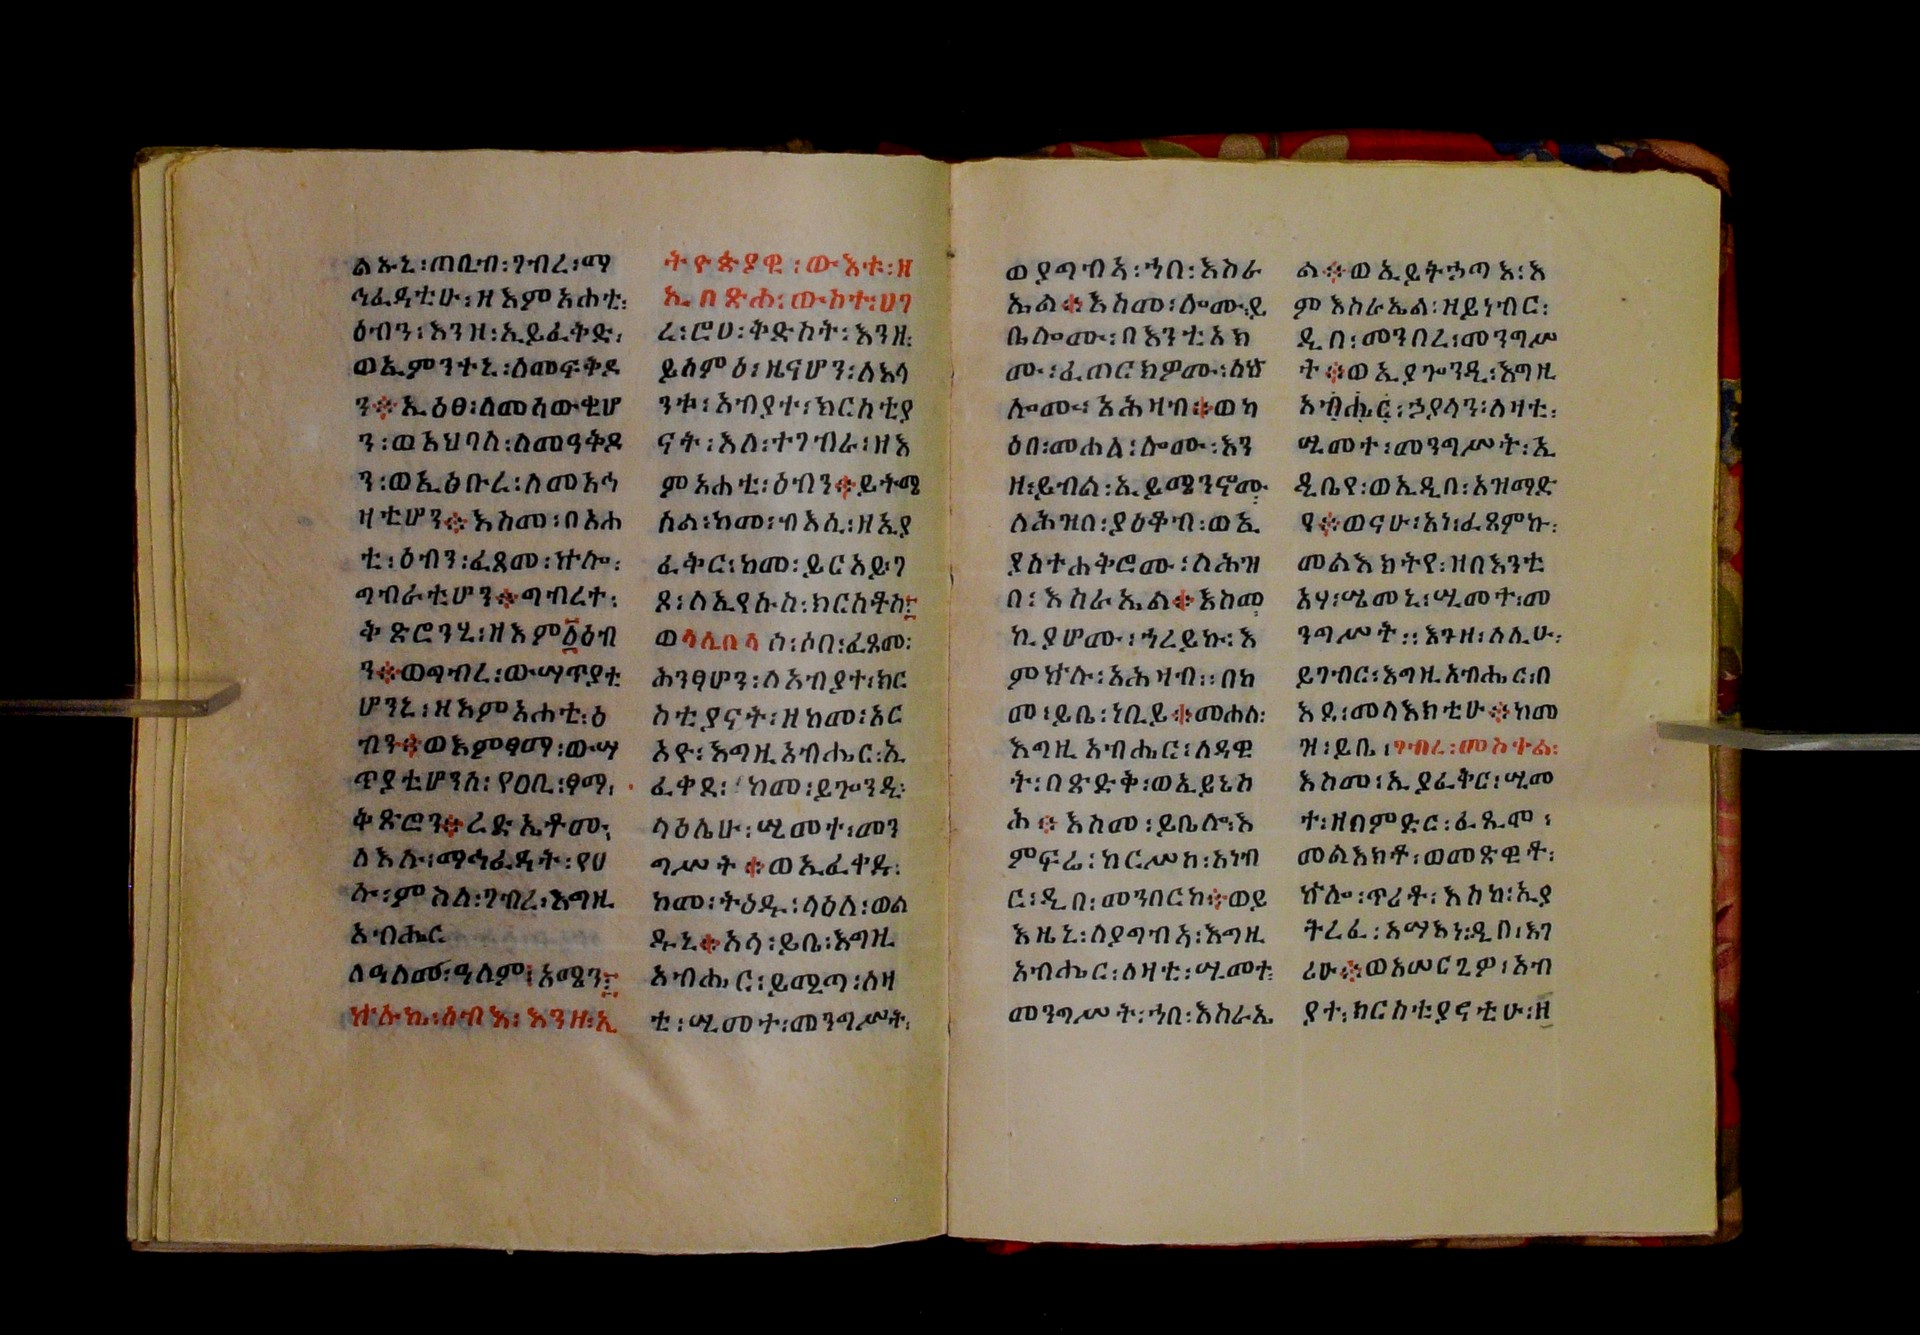 ልኡኒ፡ጠቢብ፡ገብረ፡ማ
ኅፈዲቲሁ፡ዘእምአሐቲ፡
ዕብን፡እንዘ፡ኢይፈቅድ፡
ወኢምንተኒ፡ለመፍቅዶ
ን፡ኢዕፀ፡ለመሳውቂሆ
ን፡ወአህባለ፡ለመዓቅዶ
ን፡ወኢፅቡረ፡ለመአኅ
ዛቲሆን፡እስመ፡በአሐ
ቲ፡ዕብን፡ፈጸመ፡ኵሎ፡
ግብራቲሆን፡ግብረተ፡
ቅጽሮንሂ፡ዘእም፩ዕብ
ን፡ወገብረ፡ውሣጥያቲ
ሆንኒ፡ዘእምአሐቲ፡ዕ
ብን፡ወእምፃማ፡ውሣ
ጥያቲሆንሰ፡የዐቢ፡ፃማ፡
ቅጽሮን፡ረድኤቶሙ፡
ለእሉ፡ማኅፈዳት፡የሀ
ሉ፡ምስለ፡ገብረ፡እግዚ
አብሔር
ለዓለመ፡ዓለም፡አሜን፡
ኵሉኬ፡ሰብእ፡እንዘ፡ኢ
ትዮጵያዊ፡ውእቱ፡ዘ
ኢበጽሐ፡ውስተ፡ሀገ
ረ፡ሮሀ፡ቅድስት፡እንዘ፡
ይሰምዕ፡ዜናሆን፡ለእላ
ንቱ፡አብያተ፡ክርስቲያ
ናት፡እለ፡ተገብራ፡ዘእ
ምአሐቲ፡ዕብን፡ይትሜ
ሰል፡ከመ፡ብእሲ፡ዘኢያ
ፈቅር፡ከመ፡ይርአይ፡ገ
ጾ፡ለኢየሱስ፡ክርስቶስ፡
ወላሊበላሰ፡ሶበ፡ፈጸመ፡
ሕንፃሆን፡ለአብያተ፡ክር
ስቲያናት፡ዘከመ፡አር
አዮ፡እግዚአብሔር፡ኢ
ፈቀደ፡ከመ፡ይጐንዲ፡
ላዕሌሁ፡ሢመተ፡መን
ግሥት፡ወኢፈቀደ፡
ከመ፡ትዕዱ፡ላዕለ፡ወል
ዱኒ፡አላ፡ይቤ፡እግዚ
አብሔር፡ይሚጣ፡ለዛ
ቲ፡ሢመተ፡መንግሥት፡
ወያግብኣ፡ኀበ፡እስራ
ኤል፡እስመ፡ሎሙ፡ይ
ቤሎሙ፡በእንቲአክ
ሙ፡ፈጠርክዎሙ፡ለኵ
ሎሙ፡አሕዛብ፡ወካ
ዕበ፡መሐለ፡ሎሙ፡እን
ዘ፡ይብል፡ኢይሜንኖሙ
ለሕዝበ፡ያዕቆብ፡ወኢ
ያስተሐቅሮሙ፡ለሕዝ
በ፡እስራኤል፡እስመ
ኪያሆሙ፡ኀረይኩ፡እ
ምኵሉ፡አሕዛብ፡በከ
መ፡ይቤ፡ነቢይ፡መሐለ፡
እግዚአብሔር፡ለዳዊ
ት፡በጽድቅ፡ወኢይኔስ
ሕ፡እስመ፡ይቤሎ፡እ
ምፍሬ፡ከርሥከ፡አነብ
ር፡ዲበ፡መንበርከ፡ወይ
እዜኒ፡ለያግብኣ፡እግዚ
አብሔር፡ለዛቲ፡ሢመተ፡
መንግሥት፡ኀበ፡እስራኤ
ል፡ወኢይትኃጣእ፡እ
ምእስራኤል፡ዘይነብር፡
ዲበ፡መንበረ፡መንግሥ
ት፡ወኢያጐንዲ፡እግዚ
አብሔር፡ኃያላን፡ለዛቲ፡
ሢመተ፡መንግሥት፡ኢ
ዲቤየ፡ወኢዲበ፡አዝማድ
የ፡ወናሁ፡አነ፡ፈጸምኩ፡
መልእክትየ፡ዘበእንቲ
አሃ፡ሤመኒ፡ሢመተ፡መ
ንግሥት፡፡እንዘ፡ለሊሁ፡
ይገብር፡እግዚአብሔር፡በ
እደ፡መላእክቲሁ፡ከመ
ዝ፡ይቤ፡ገብረ፡መስቀል፡
እስመ፡ኢያፈቅር፡ሢመ
ተ፡ዘበምድር፡ፈጺሞ፡
መልእክቶ፡ወመጽዊተ፡
ኵሎ፡ጥሪቶ፡እስከ፡ኢያ
ትረፈ፡አማእነ፡ዲበ፡እገ
ሪሁ፡ወአሠርጊዎ፡አብ
ያተ፡ክርስቲያናቲሁ፡ዘ